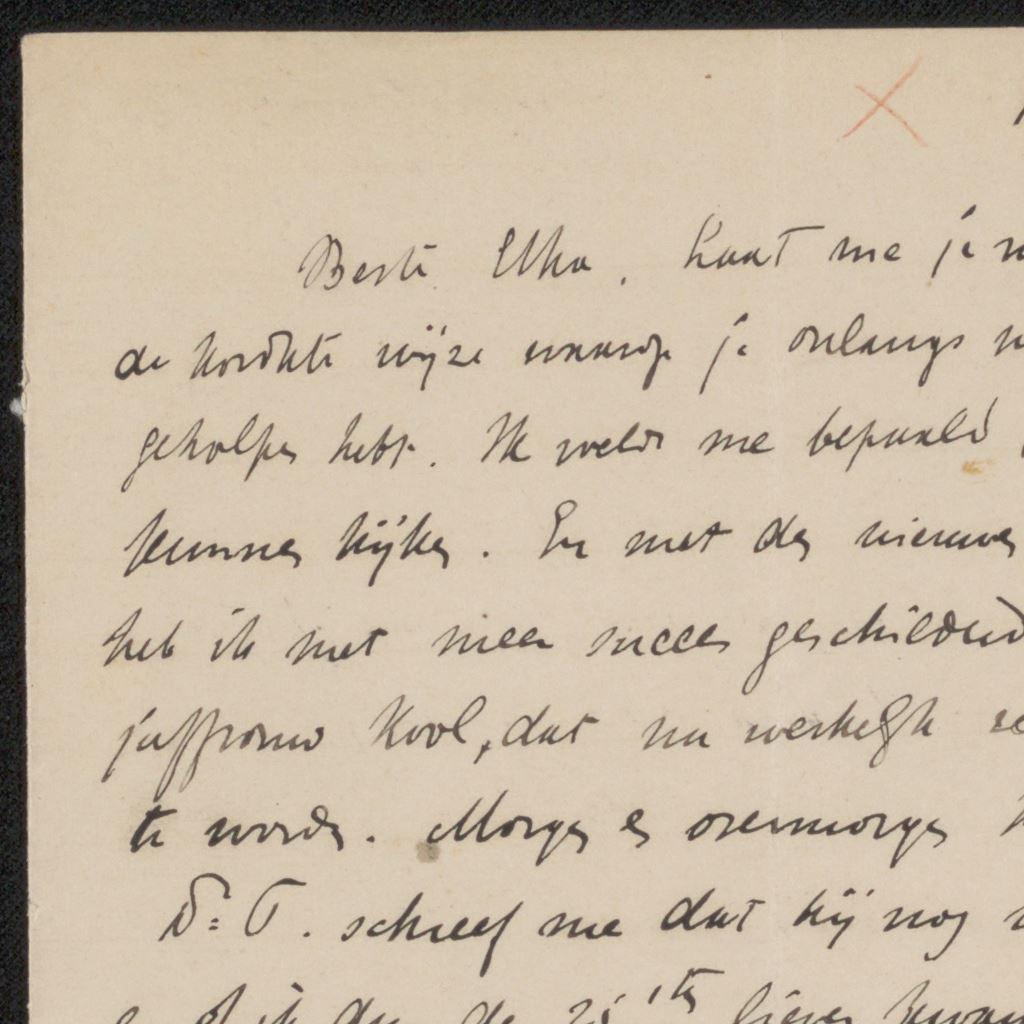 Beste Elka, Laat me je
de kordate wijze waarop je onlangs
geholpen hebt. Ik voelde me bepaald
kunnen kijken. En met den nieuwen
heb ik met meer succes geschilderd
juffrouw Kool, dat nu werkelijk
te worden. Morgen en overmorgen
Dr. T. schreef me dat hij nog
ik de liever